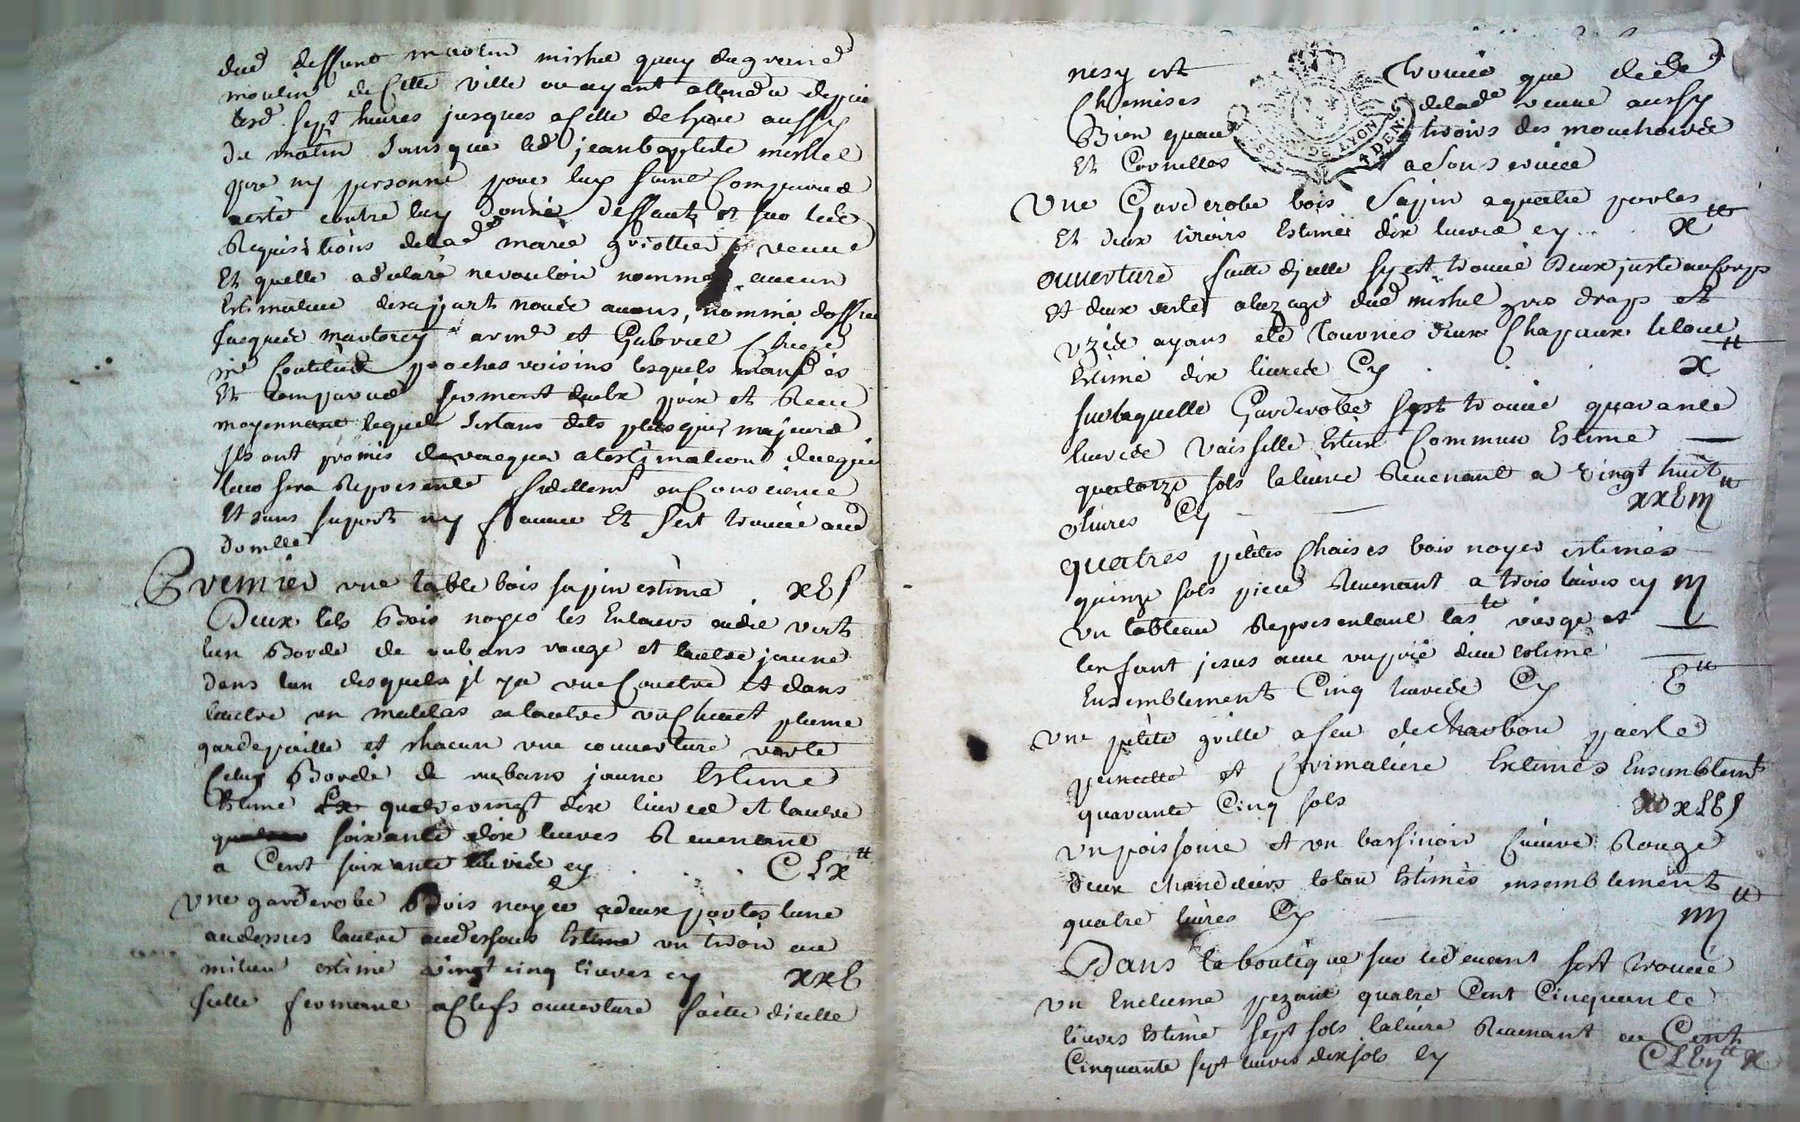 dud deffunt martin mishel quay du
moulin de cette ville ou ayant attendu depuis
lesd sept heures jusques a celle de aussy
du matin sans que led jean baptiste mishel
ny personne pour luy soint comparus
avons contre luy donné deffaut et sur les
Requisitions de lad marie veuve
Et quelle a declaré ne vouloir nommer aucun
Estimateur de sa part nous avons nommé doffice
jacques et Gabriel
me proches voisins lesquels mandés
Et comparus serment deubx pris et Receu
moyennant lequel sestans dits plus que majeurs
jls ont promis de vacquer a lestimation
leur sera Represanté fidellemt en Conscience
Et sans suport ny faveur Et sest trouvé aud
domille
Premier une table bois sapin estimé xLs
Deux lits Bois noyer les Entours cadis verts
lun Bordé de rubans rouge et lautre jaune
dans lun desquels jl ya une Couetre et dans
lautre un matelas en lautre un Chevet plume
gardepaille et chacun une couverture verte
Celuy Bordé de rubans jaune Estimé
quatrevingt dix livres et lautre
soixante dix livres Revenant
a Cent soixante livres cy CLx tt
Une garderobe Bois noyer a deux portes lune
audessus lautre audessous un tiroir au
milieu estimé vingt cinq livres cy xxv
sette fermant a Clefs ouverture faitte dicelle
nesy est trouvé que
Chemises de lad veuve aussy
Bien que trois des mouchoirs
Et Cornettes a son service
LYON 4 DEN.
Une Garderobe bois sapin a quatre portes
Et deux tiroirs Estimés dix livres cy x tt
ouverture faitte djcelle sy est trouvé deux justeaucorps
Et deux vestes a luzage dud mishel gros drap et
uzés ayans eté trouvés deux Chapaux
Estimé dix livres Cy x tt
sur laquelle Garderobe sest trouvé quarante
livres vaisselle Estin Commun Estimé
quatorze sols la livre Revenant a vingt huit
livres Cy xxviij tt
quatres petites Chaises bois noyer estimés
quinze sols piece Revenant a trois livres cy iij
un tableau Represantant la ste vierge et
lenfant jesus avec un prie dieu estimé
Ensemblement Cinq livres Cy v tt
une petite grille a feu de charbon paesle
pincette et Crimaliere Estimés Ensemblemt
quarante Cinq sols xLvs
un poissonie et un bassinoir Cuivre Rouge
deux chandeliers leton Estimés ensemblement
quatre livres Cy iiij tt
Dans la boutique sur le devant sest trouvé
un Enclume pezant quatre Cent Cinquante
livres Estimé sept sols la livre Revenant a Cent
Cinquante sept livres dix sols Cy CLvij tt x